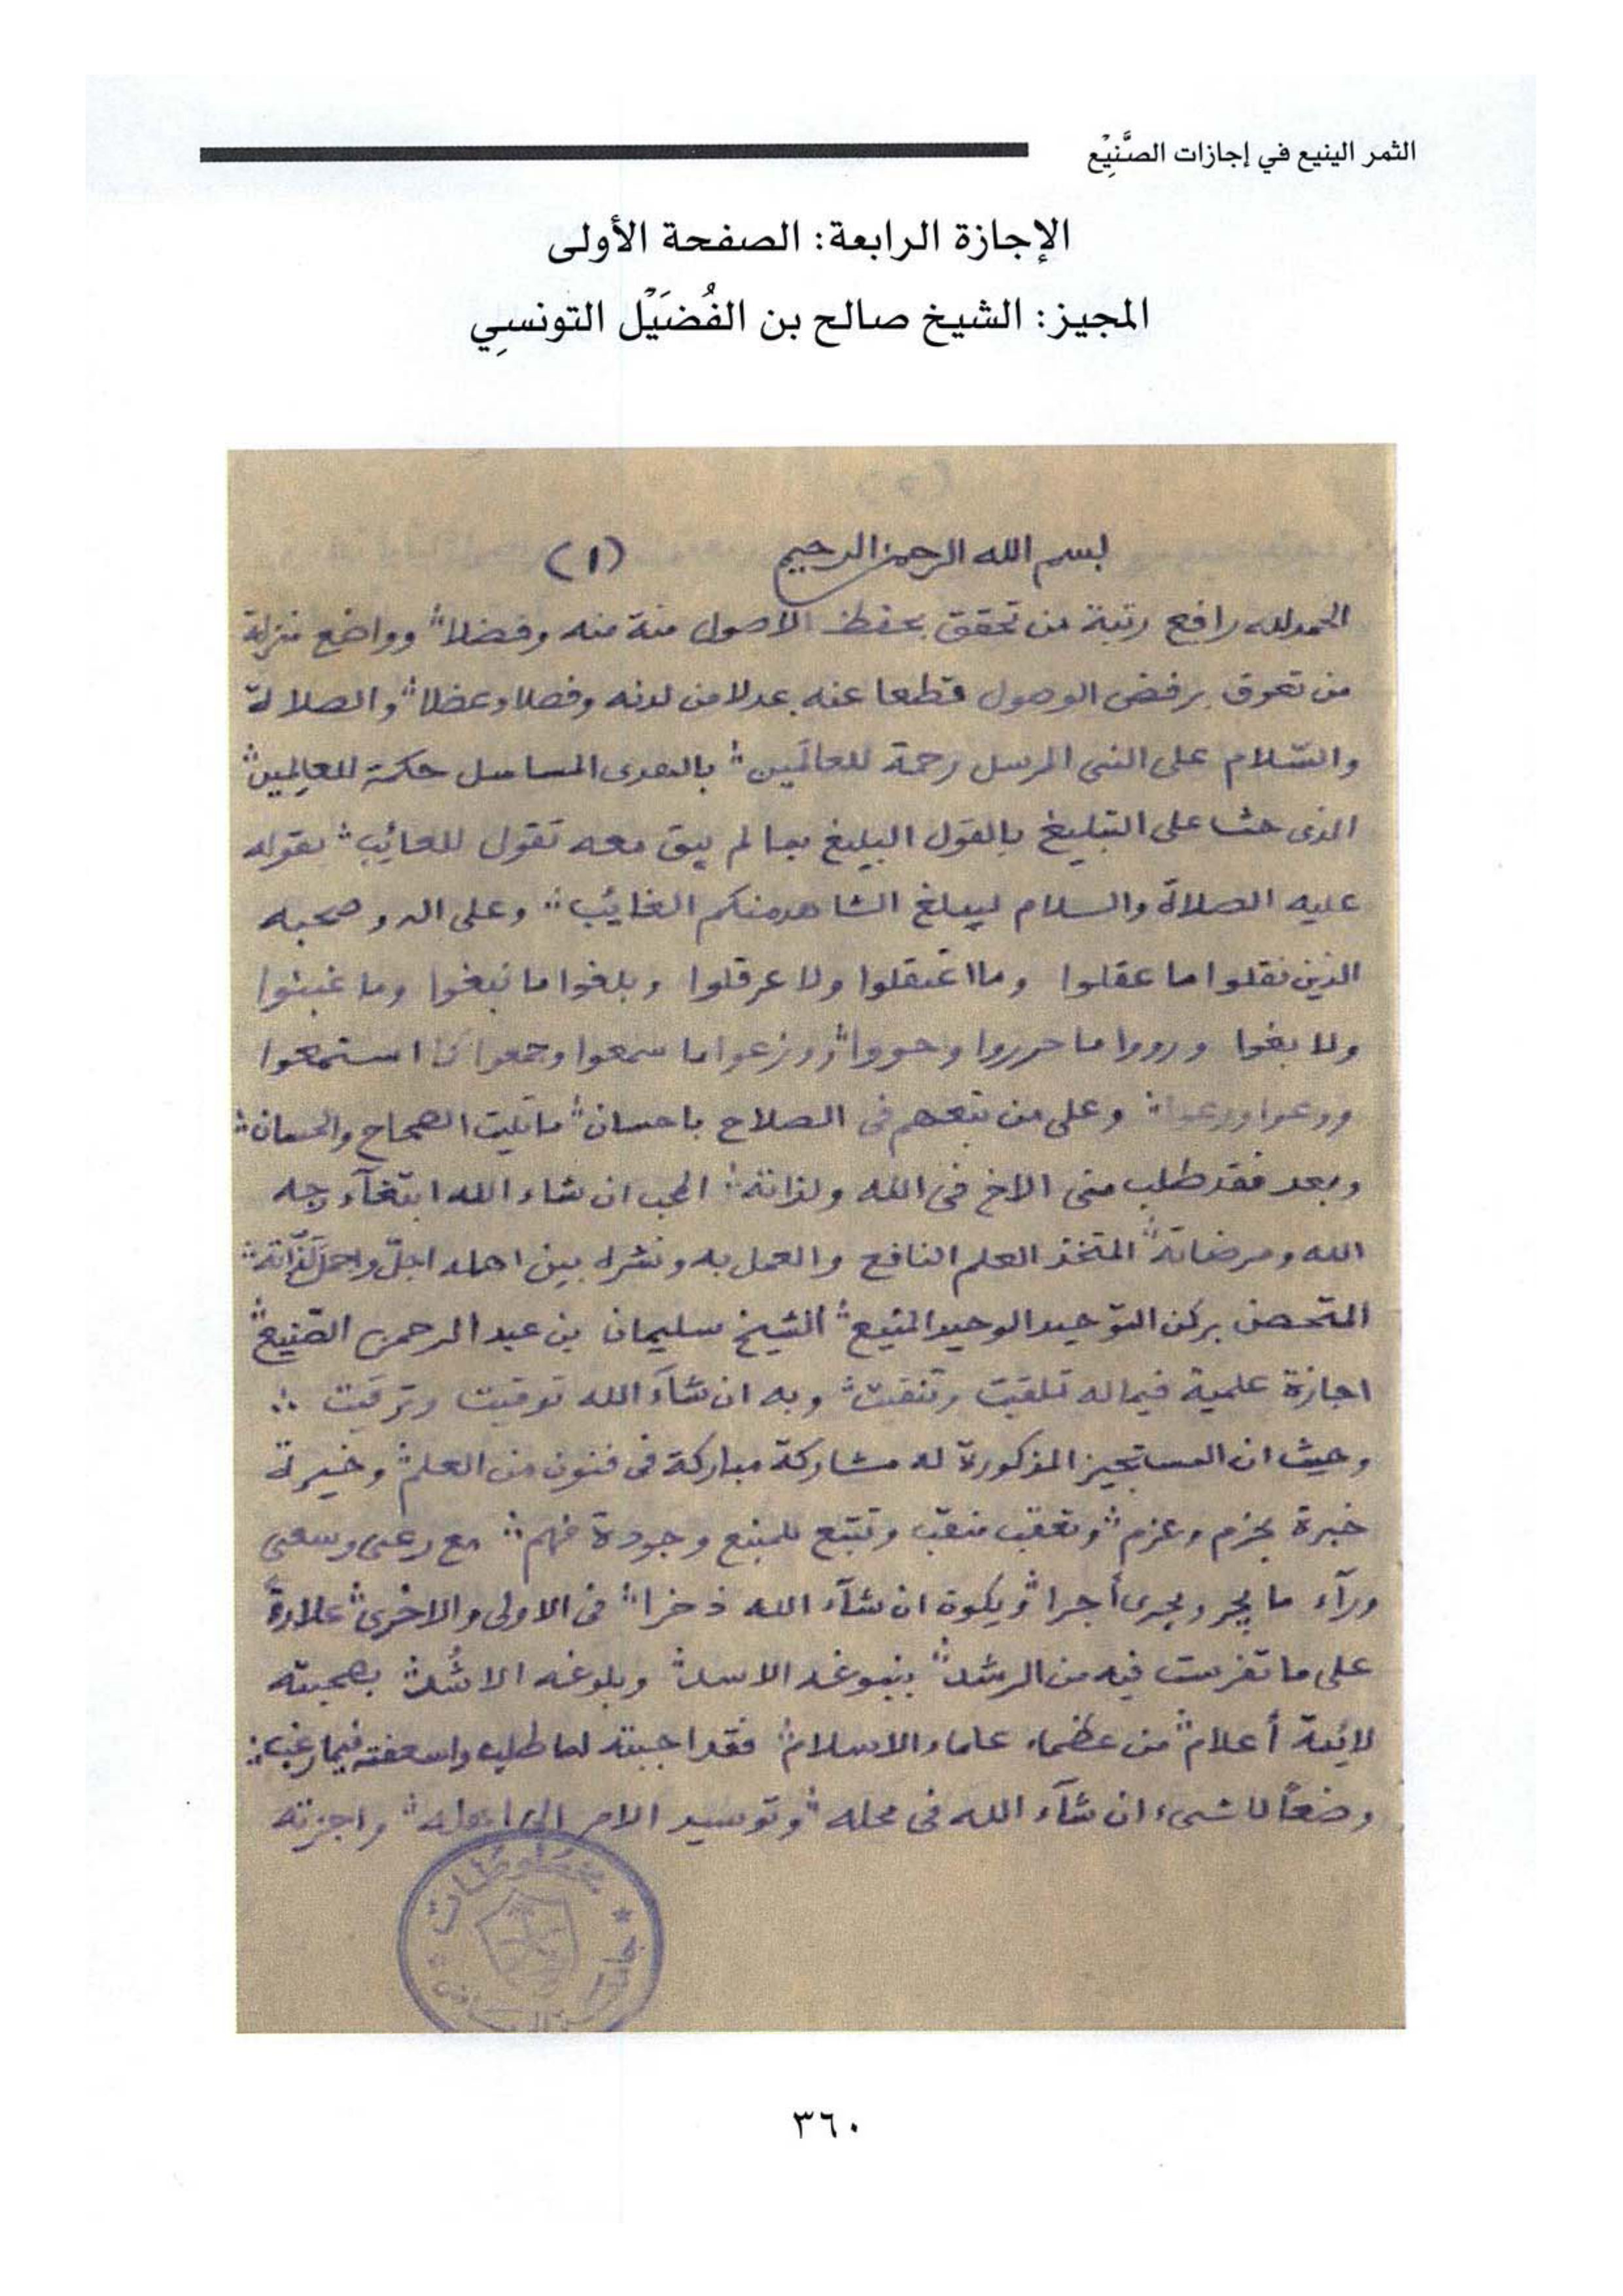 الثمر الينيع في إجازات الصَّنِيْع
الإجازة الرابعة: الصفحة الأولى
المجيز: الشيخ صالح بن الفُضَيْل التونسِي
بسم الله الرحمن الرحيم (١)
الحمد لله رافع رتبة من تحقق بحفظ الاصول منة منه وفضلا ؞ وواضع منزلة
من تعوق برفض الوصول قطعا عنه عدلا من لدنه وفصلا وعضلا ؞ والصلاة
والسّلام على النبى المرسل رحمة للعالَمين ؞ بالهدى المسلسل حكمة للعالِمين ؞
الذى حثنا على التبليغ بالقول البليغ بما لم يبق معه تقول للعائب ؞ بقوله
عليه الصلاة والسلام ليبلغ الشاهد منكم الغائب ؞ وعلى اله وصحبه
الذين نقلوا ما عقلوا وما اعتقلوا ولا عرقلوا وبلغوا ما نبغوا وما
ولا بغوا ورووا ما حرروا وحووا ؞ وزعوا ما سمعوا وجمعوا استمعوا
ودعوا ؞ وعلى من تبعهم فى الصلاح باحسان ؞ ما تليت الصحاح والحسان ؞
وبعد فقد طلب منى الاخ فى الله ولذاته ؞ المحب ان شاء الله ابتغآء وجه
الله ومرضاته ؞ المتخذ العلم النافع والعمل به ونشره بين اهله اجلّ واجمل لَذّاته ؞
المتحصن بركن التوحيد الوحيد المنيع ؞ الشيخ سليمان بن عبد الرحمن الصّنيع ؞
اجازة علمية فيما له تلقيت ؞ وبه ان شآء الله توقيت وترقيت ؞
وحيث ان المستجيز المذكور له مشاركة مباركة فى فنون من العلم ؞ وخيرة
خبرة بحزم وعزم ؞ وتعقب وتتبع وجودة فهم ؞ مع وعى وسعى
ورآء ما يجر ويجرى أجرا ؞ ويكون ان شآء الله ذخرا ؞ فى الاولى والاخرى ؞ علاوة
على ما تفرست فيه من الرشد ؞ بنبوغه الاسد ؞ وبلوغه الاشُد ؞ بصحبته
لائمة أعلام ؞ من عظماء علماء الاسلام ؞ فقد اجبته لما طلب واسعفته فيما رغب ؞
وضعاً للشىء ان شآء الله فى محله ؞ وتوسيد الامر الى اهله ؞ واجزته
مخطوطات
جامعة الرياض
٣٦٠